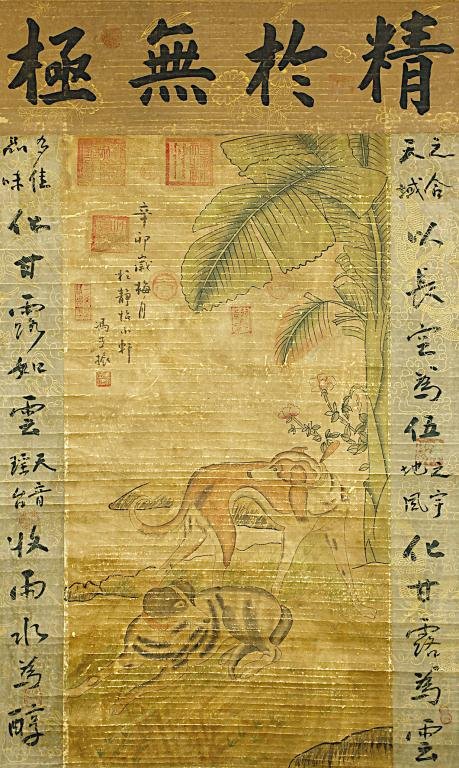 精於無極
之合
天域
以長空為伍
之宇
地風
化甘露為雲
辛卯歲梅月
於靜怡小軒
馮子振
多佳
品味
化甘露如雲
天音
瑤台
收雨水為醇